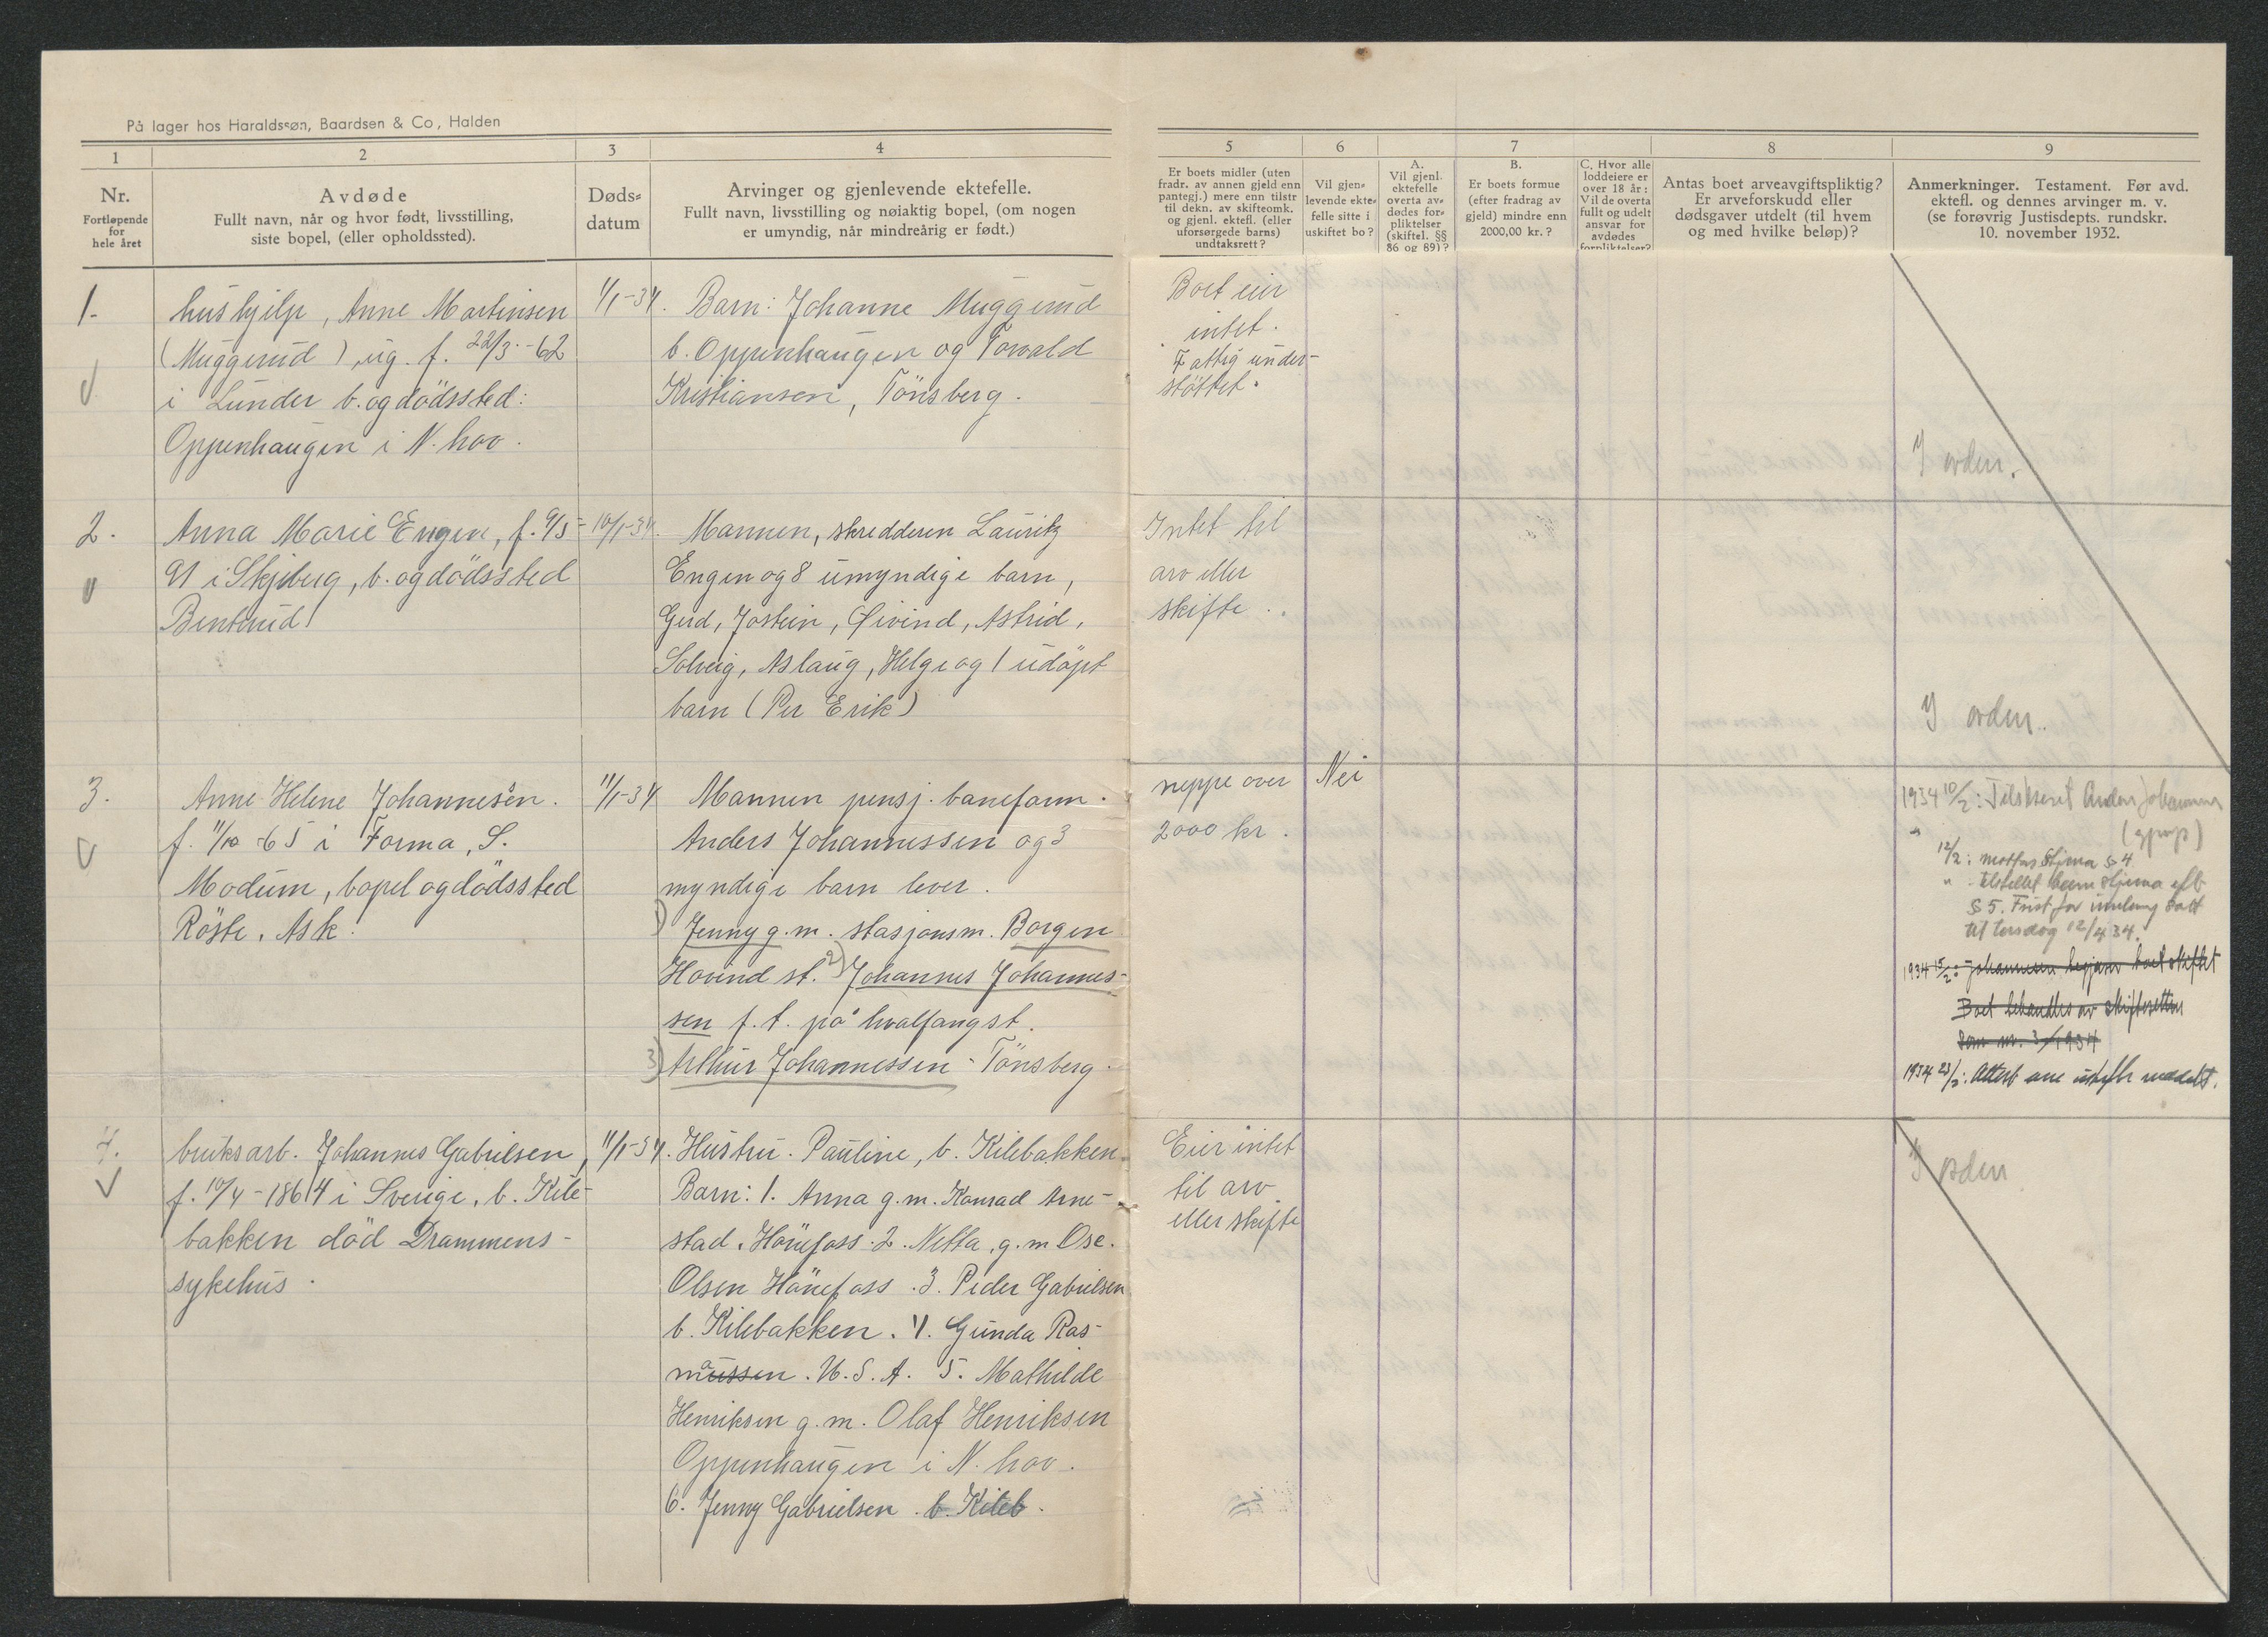 På lager hos Haraldssøn, Baardsen & Co, Halden
1
2
3
4
5
6
7
8
9
Nr.
Fortløpende
for
hele året
Avdøde
Fullt navn, når og hvor født, livsstilling,
siste bopel, (eller opholdssted).
Døds-
datum
Arvinger og gjenlevende ektefelle.
Fullt navn, livsstilling og nøiaktig bopel, (om nogen
er umyndig, når mindreårig er født.)
Er boets midler (uten
fradr. av annen gjeld enn
pantegj.) mere enn tilstr
til dekn. av skifteomk.
og gjenl. ektefl. (eller
uforsørgede barns)
undtaksrett?
Vil gjen-
levende ekte-
felle sitte i
uskiftet bo?
A.
Vil gjenl.
ektefelle
overta av-
dødes for-
pliktelser
(skiftel. §§
86 og 89)?
B.
Er boets formue
(efter fradrag av
gjeld) mindre enn
2000,00 kr.?
C. Hvor alle
loddeiere er
over 18 år:
Vil de overta
fullt og udelt
ansvar for
avdødes
forpliktelser?
Antas boet arveavgiftspliktig?
Er arveforskudd eller
dødsgaver utdelt (til hvem
og med hvilke beløp)?
Anmerkninger. Testament. Før avd.
ektefl. og dennes arvinger m. v.
(se forøvrig Justisdepts. rundskr.
10. november 1932.
1.
hushjelp, Anne Martinsen
(Muggerud), ug. f. 22/3.-62
i Lunder b. og dödssted:
Oppenhaugen i N. hov.
1/1-34.
Barn: Johanne Muggerud
b. Oppenhaugen og Torvald
Kristiansen, Tönsberg.
Boet eier
intet.
Fattig under-
støttet.
I orden.
2.
Anna Marie Engen, f. 9/5-
91 i Skjeberg, b. og dödssted
Benterud
10/1-34.
Mannen, skredderen Lauritz
Engen og 8 umyndige barn,
Gerd, Jostein, Øivind, Astrid,
Solveig, Aslaug, Helge og 1 udöpt
barn (Per Erik)
Intet til
arv eller
skifte.
I orden.
3.
Anne Helene Johannesen.
f. 11/10-65 i Forma, S.
Modum, bopel og dödssted
Röste. Ask.
11/1-34
Mannen pensj. baneform.
Anders Johannessen og 3
myndige barn lever.
1) Jenny g.m. stasjonsm. Borgen
Hovind st. 2) Johannes Johannes-
sen f.t. på hvalfangst.
3) Arthur Johannessen - Tönsberg.
neppe over
2000 kr.
Nei
1934 10/2: Tilskrevet Anders Johannessen
12/2: mottas Skjema § 4
" : tilstillet ham skjema eft.
§ 5. Frist for satt
til torsdag 12/4 34.
1934 15/2: Johannesen begjærer boet skiftet
Boet behandles av skifteretten
som nr. 3/1934
1934 23/2: Attest meddelt.
4.
bruksarb. Johannes Gabrielsen,
f. 10/4-1864 i Sverige, b. Kile-
bakken död Drammens-
sykehus.
11/1-34.
Hustru. Pauline, b. Kilebakken.
Barn: 1. Anna g.m. Konrad Arne-
stad. Hönefoss. 2. Netta, g.m Osc.
Olsen Hönefoss. 3. Peder Gabrielsen
b. Kilebakken. 4. Gunda Ras-
mussen. U.S.A. 5. Mathilde
Henriksen g.m. Olaf Henriksen
Oppenhaugen i N. hov.
6. Jenny Gabrielsen. b. Kileb.
Eier intet
til arv
eller skifte
I orden